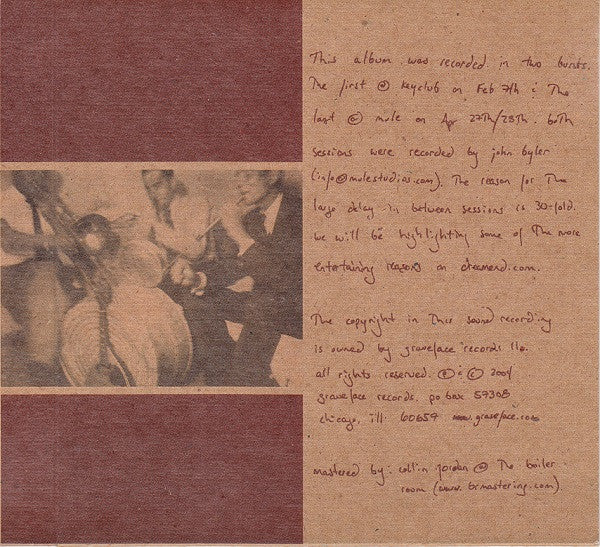 This album was recorded in two bursts.
The first @ keyclub on Feb 7th & The
last @ mule on Apr 27th/28th. both
sessions were recorded by john byler
(info@mulestudios.com). The reason for The
large delay in between sessions is 30-fold.
we will be highlighting some of The more
entertaining reasons on dreamend.com.
The copyright in This sound recording
is owned by graveface records llc.
all rights reserved. ℗ & © 2004
graveface records. po box 59308
chicago, ill. 60659 www.graveface.com
mastered by: collin jordan @ The boiler
room (www.brmastering.com)